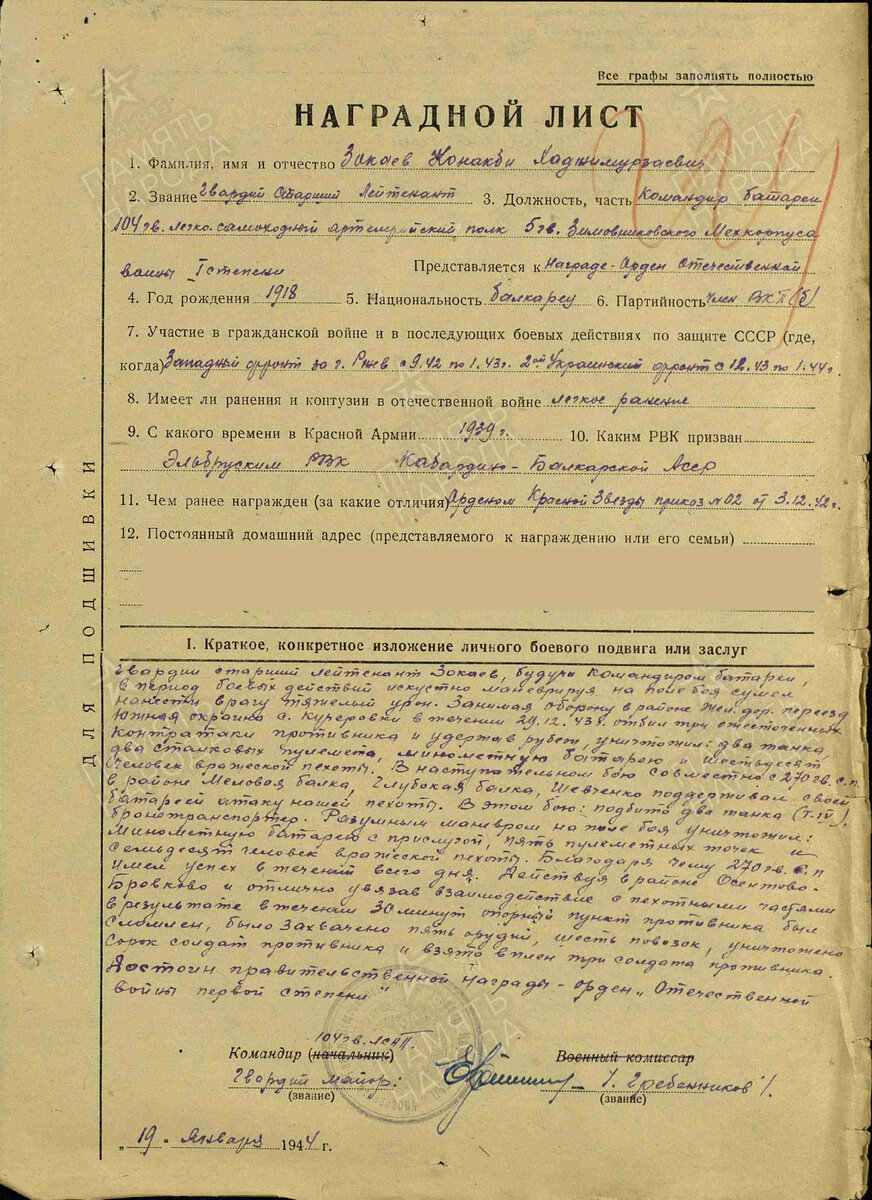 Все графы заполнять полностью
НАГРАДНОЙ ЛИСТ
1. Фамилия, имя и отчество Зокаев Конакби Хаджимурзаевич
2. Звание Гвардии Старший Лейтенант 3. Должность, часть Командир батареи
104 гв. легко-самоходный артелерийский полк 5 гв. Зимовниковского Мехкорпуса
Представляется к Награде-Орден Отечественной
войны I степени
4. Год рождения 1918 5. Национальность балкарец 6. Партийность член ВКП(б)
7. Участие в гражданской войне и в последующих боевых действиях по защите СССР (где,
когда) Западный фронт за г. Ржев с 9.42 по 1.43г. 2ой Украинский фронт с 12.43 по 1.44г.
8. Имеет ли ранения и контузии в отечественной войне легкое ранение
9. С какого времени в Красной Армии 1939 г. 10. Каким РВК призван
Эльбруским РВК Кабардино-Балкарской Асср
11. Чем ранее награжден (за какие отличия) Орденом Красной Звезды приказ №02 от 3.12.42г.
12. Постоянный домашний адрес (представляемого к награждению или его семьи)
ДЛЯ ПОДШИВКИ
I. Краткое, конкретное изложение личного боевого подвига или заслуг
Гвардии старший лейтенант Зокаев, будучи командиром батареи,
в период боевых действий искустно маневрируя на поле боя сумел
нанести врагу тяжелый урон. Занимая оборону в районе Жел. дор. переезд
Южная окраина с. Кучеровки в течении 29.12.43г. отбил три ожесточенных
контратаки противника и удержав рубеж, уничтожил: два танка,
два станковых пулемета, минометную батарею и шестьдесят
человек вражеской пехоты. В наступательном бою совместно с 270 гв. с.п.
в районе Меловая балка, Глубокая балка, Шевченко поддерживал своей
батареей атаку нашей пехоты. В этом бою: подбито два танка (Т-IV),
бронотранспортер. Разумным маневром на поле боя уничтожил:
Минометную батарею с прислугой, пять пулеметных точек и
семьдесят человек вражеской пехоты. Благодаря чему 270 гв. с.п
имел успех в течений всего дня. Действуя в районе Осетово-
Бровково и отлично увязав взаимодействие с пехотными частями
в результате в течении 30 минут опорный пункт противника был
сломлен, было захвачено пять орудий, шесть повозок, уничтожено
сорок солдат противника и взято в плен три солдата противника.
Достоин правительственной награды - орден „Отечественной
войны первой степени"
104 гв. ЛСАП.
Командир (начальник) Военный комиссар
Гвардии майор: /. Гребенников /.
(звание) (звание)
„19" Января 1944 г.
ПАМЯТЬ НАРОДА